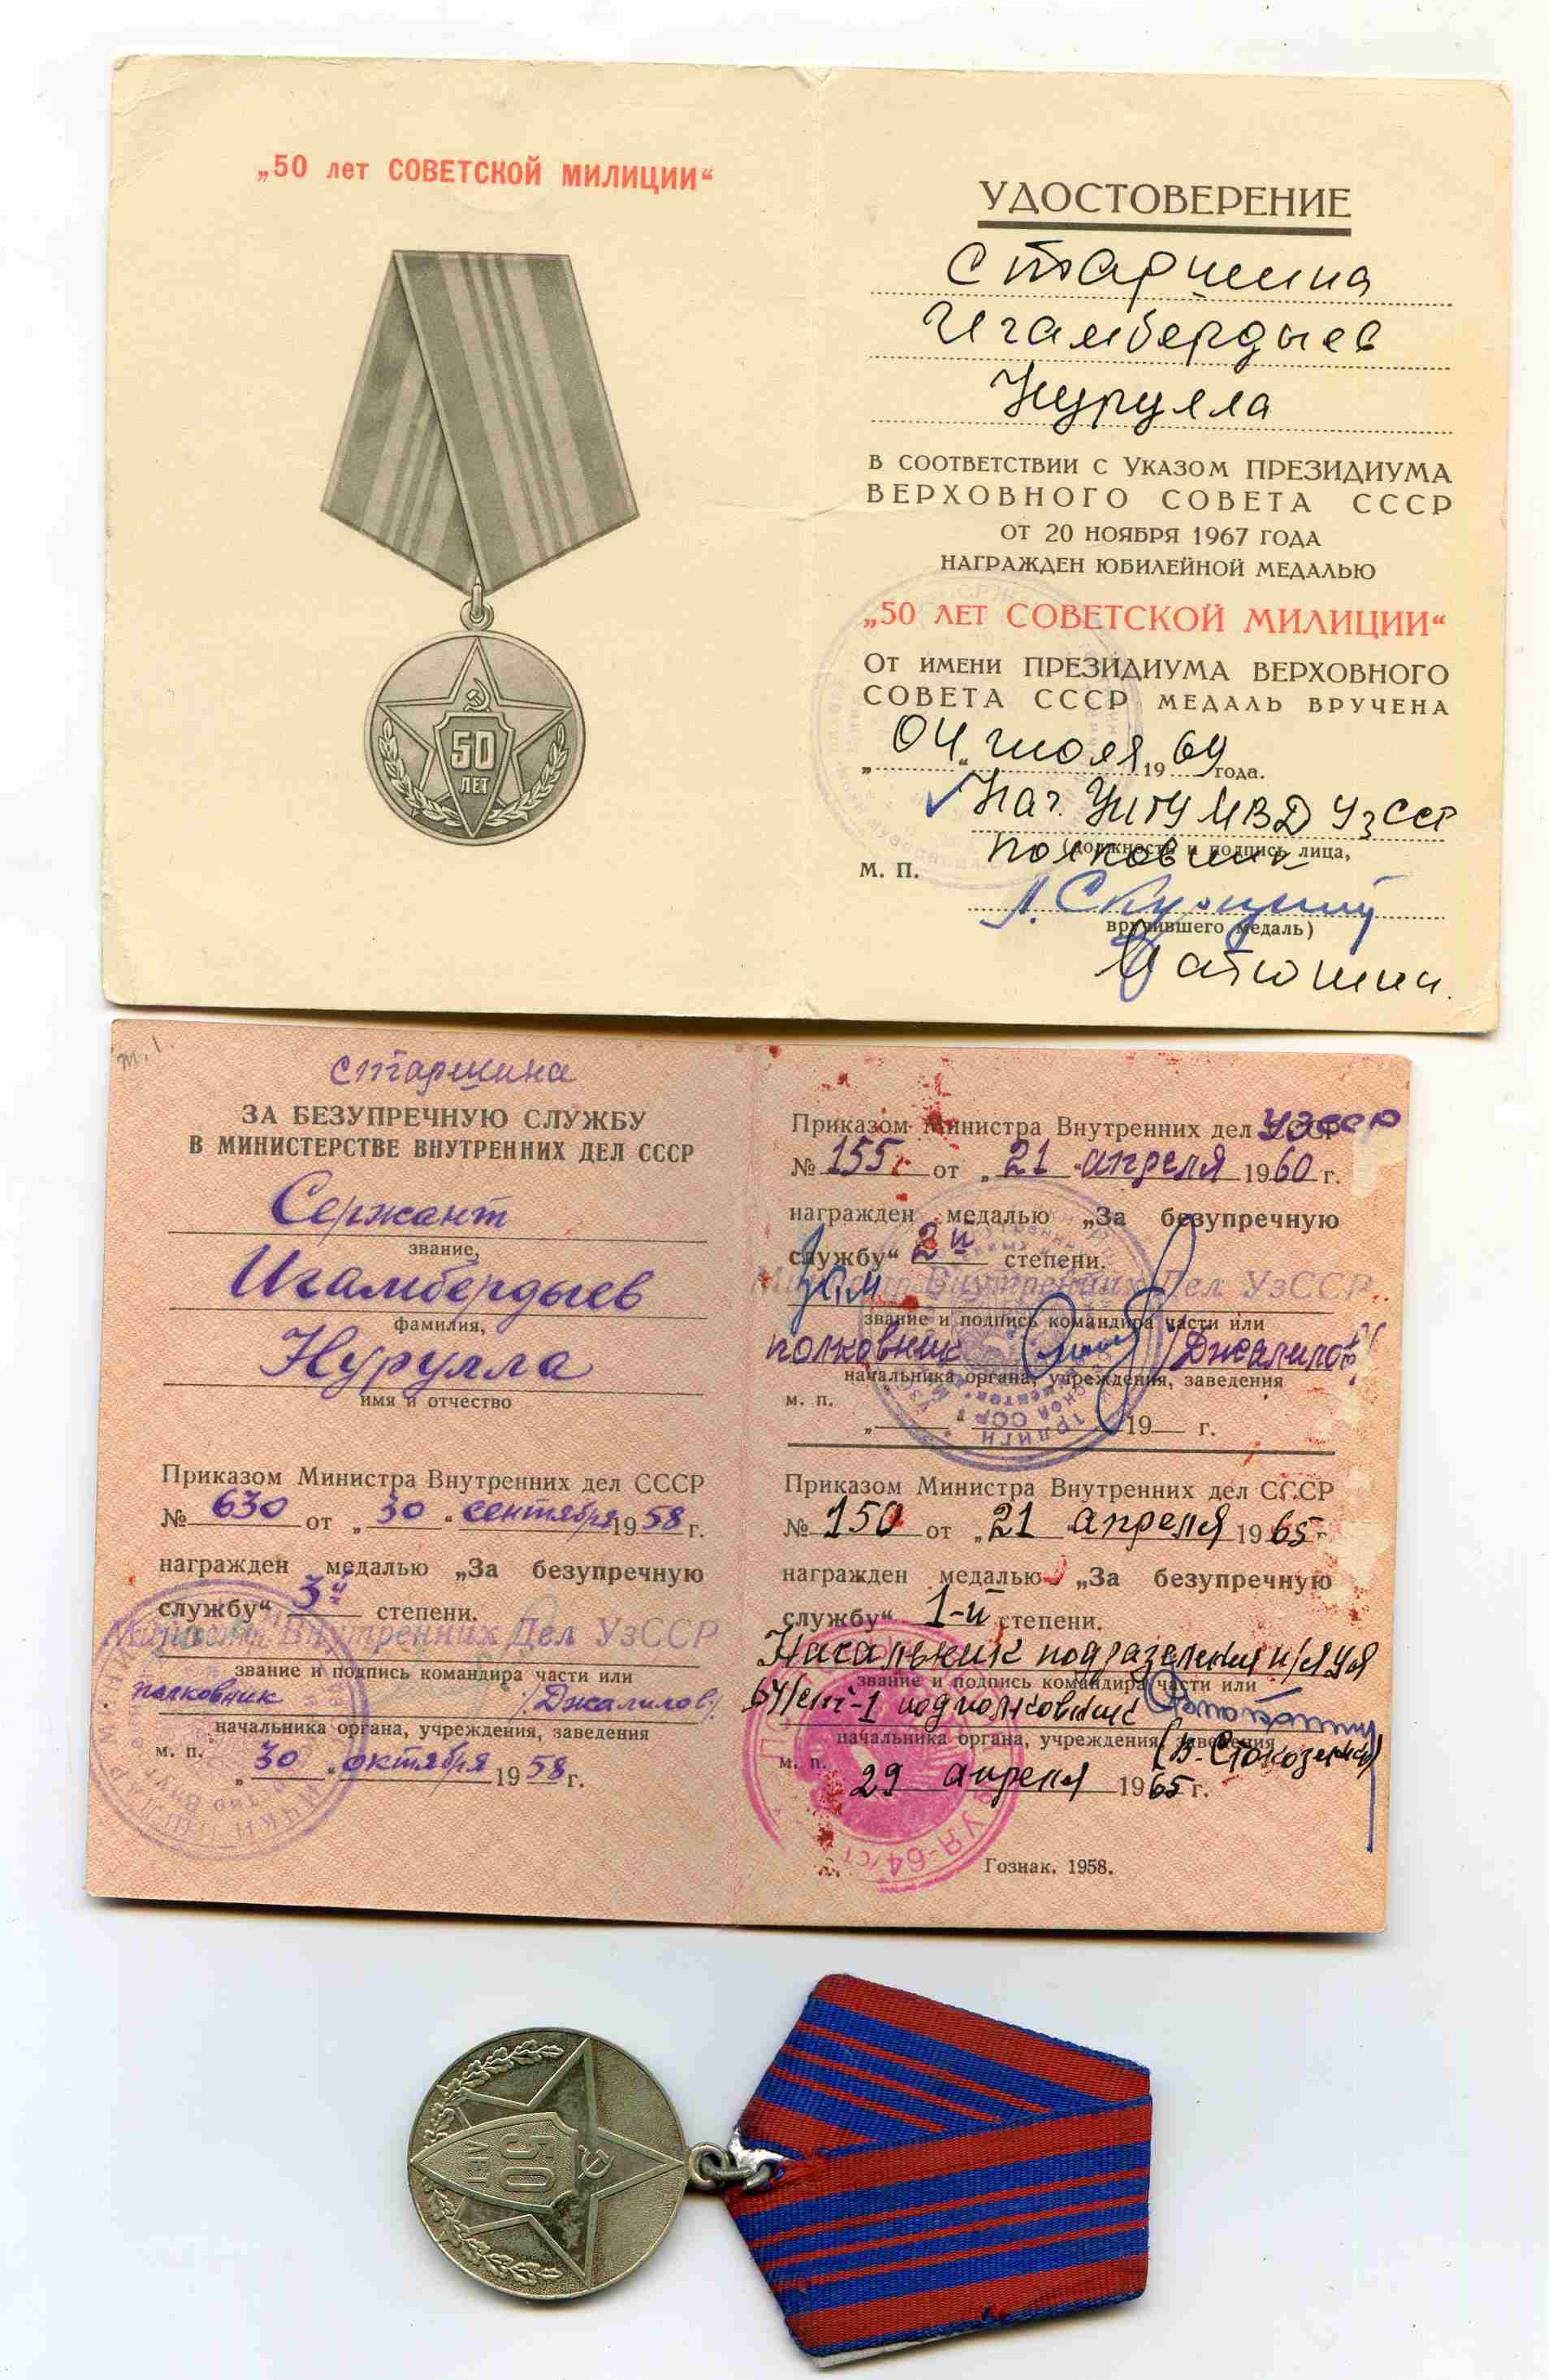 „50 лет СОВЕТСКОЙ МИЛИЦИИ“
50
ЛЕТ
УДОСТОВЕРЕНИЕ
Старшина
Игамбердыев
Нурулла
В СООТВЕТСТВИИ С УКАЗОМ ПРЕЗИДИУМА
ВЕРХОВНОГО СОВЕТА СССР
ОТ 20 НОЯБРЯ 1967 ГОДА
НАГРАЖДЕН ЮБИЛЕЙНОЙ МЕДАЛЬЮ
„50 ЛЕТ СОВЕТСКОЙ МИЛИЦИИ“
ОТ ИМЕНИ ПРЕЗИДИУМА ВЕРХОВНОГО
СОВЕТА СССР МЕДАЛЬ ВРУЧЕНА
„04“ июля 1969 года.
Нач. УИТУ МВД УзССР
полковник
(должность и подпись лица,
М. П.
вручившего медаль)
т. 1.
старшина
ЗА БЕЗУПРЕЧНУЮ СЛУЖБУ
В МИНИСТЕРСТВЕ ВНУТРЕННИХ ДЕЛ СССР
Сержант
звание,
Игамбердыев
фамилия,
Нурулла
имя и отчество
Приказом Министра Внутренних дел СССР
№ 630 от „30“ сентября 1958 г.
награжден медалью „За безупречную
службу“ 3й степени.
Министр Внутренних Дел УзССР
звание и подпись командира части или
полковник /Джалилов/
начальника органа, учреждения, заведения
м. п.
„30“ октября 1958 г.
Приказом Министра Внутренних дел УзССР
№ 155 от „21“ апреля 1960 г.
награжден медалью „За безупречную
службу“ 2й степени.
Зам Министр Внутренних Дел УзССР
звание и подпись командира части или
полковник /Джалилов/
начальника органа, учреждения, заведения
м. п.
„ “ 19 г.
Приказом Министра Внутренних дел СССР
№ 150 от „21“ апреля 1965 г.
награжден медалью „За безупречную
службу“ 1-й степени.
Начальник подразделения п/я УЯ
звание и подпись командира части или
64/ст-1 подполковник
начальника органа, учреждения, заведения
м. п.
29 апреля 1965 г.
УЯ-64/ст
Гознак. 1958.
50
ЛЕТ